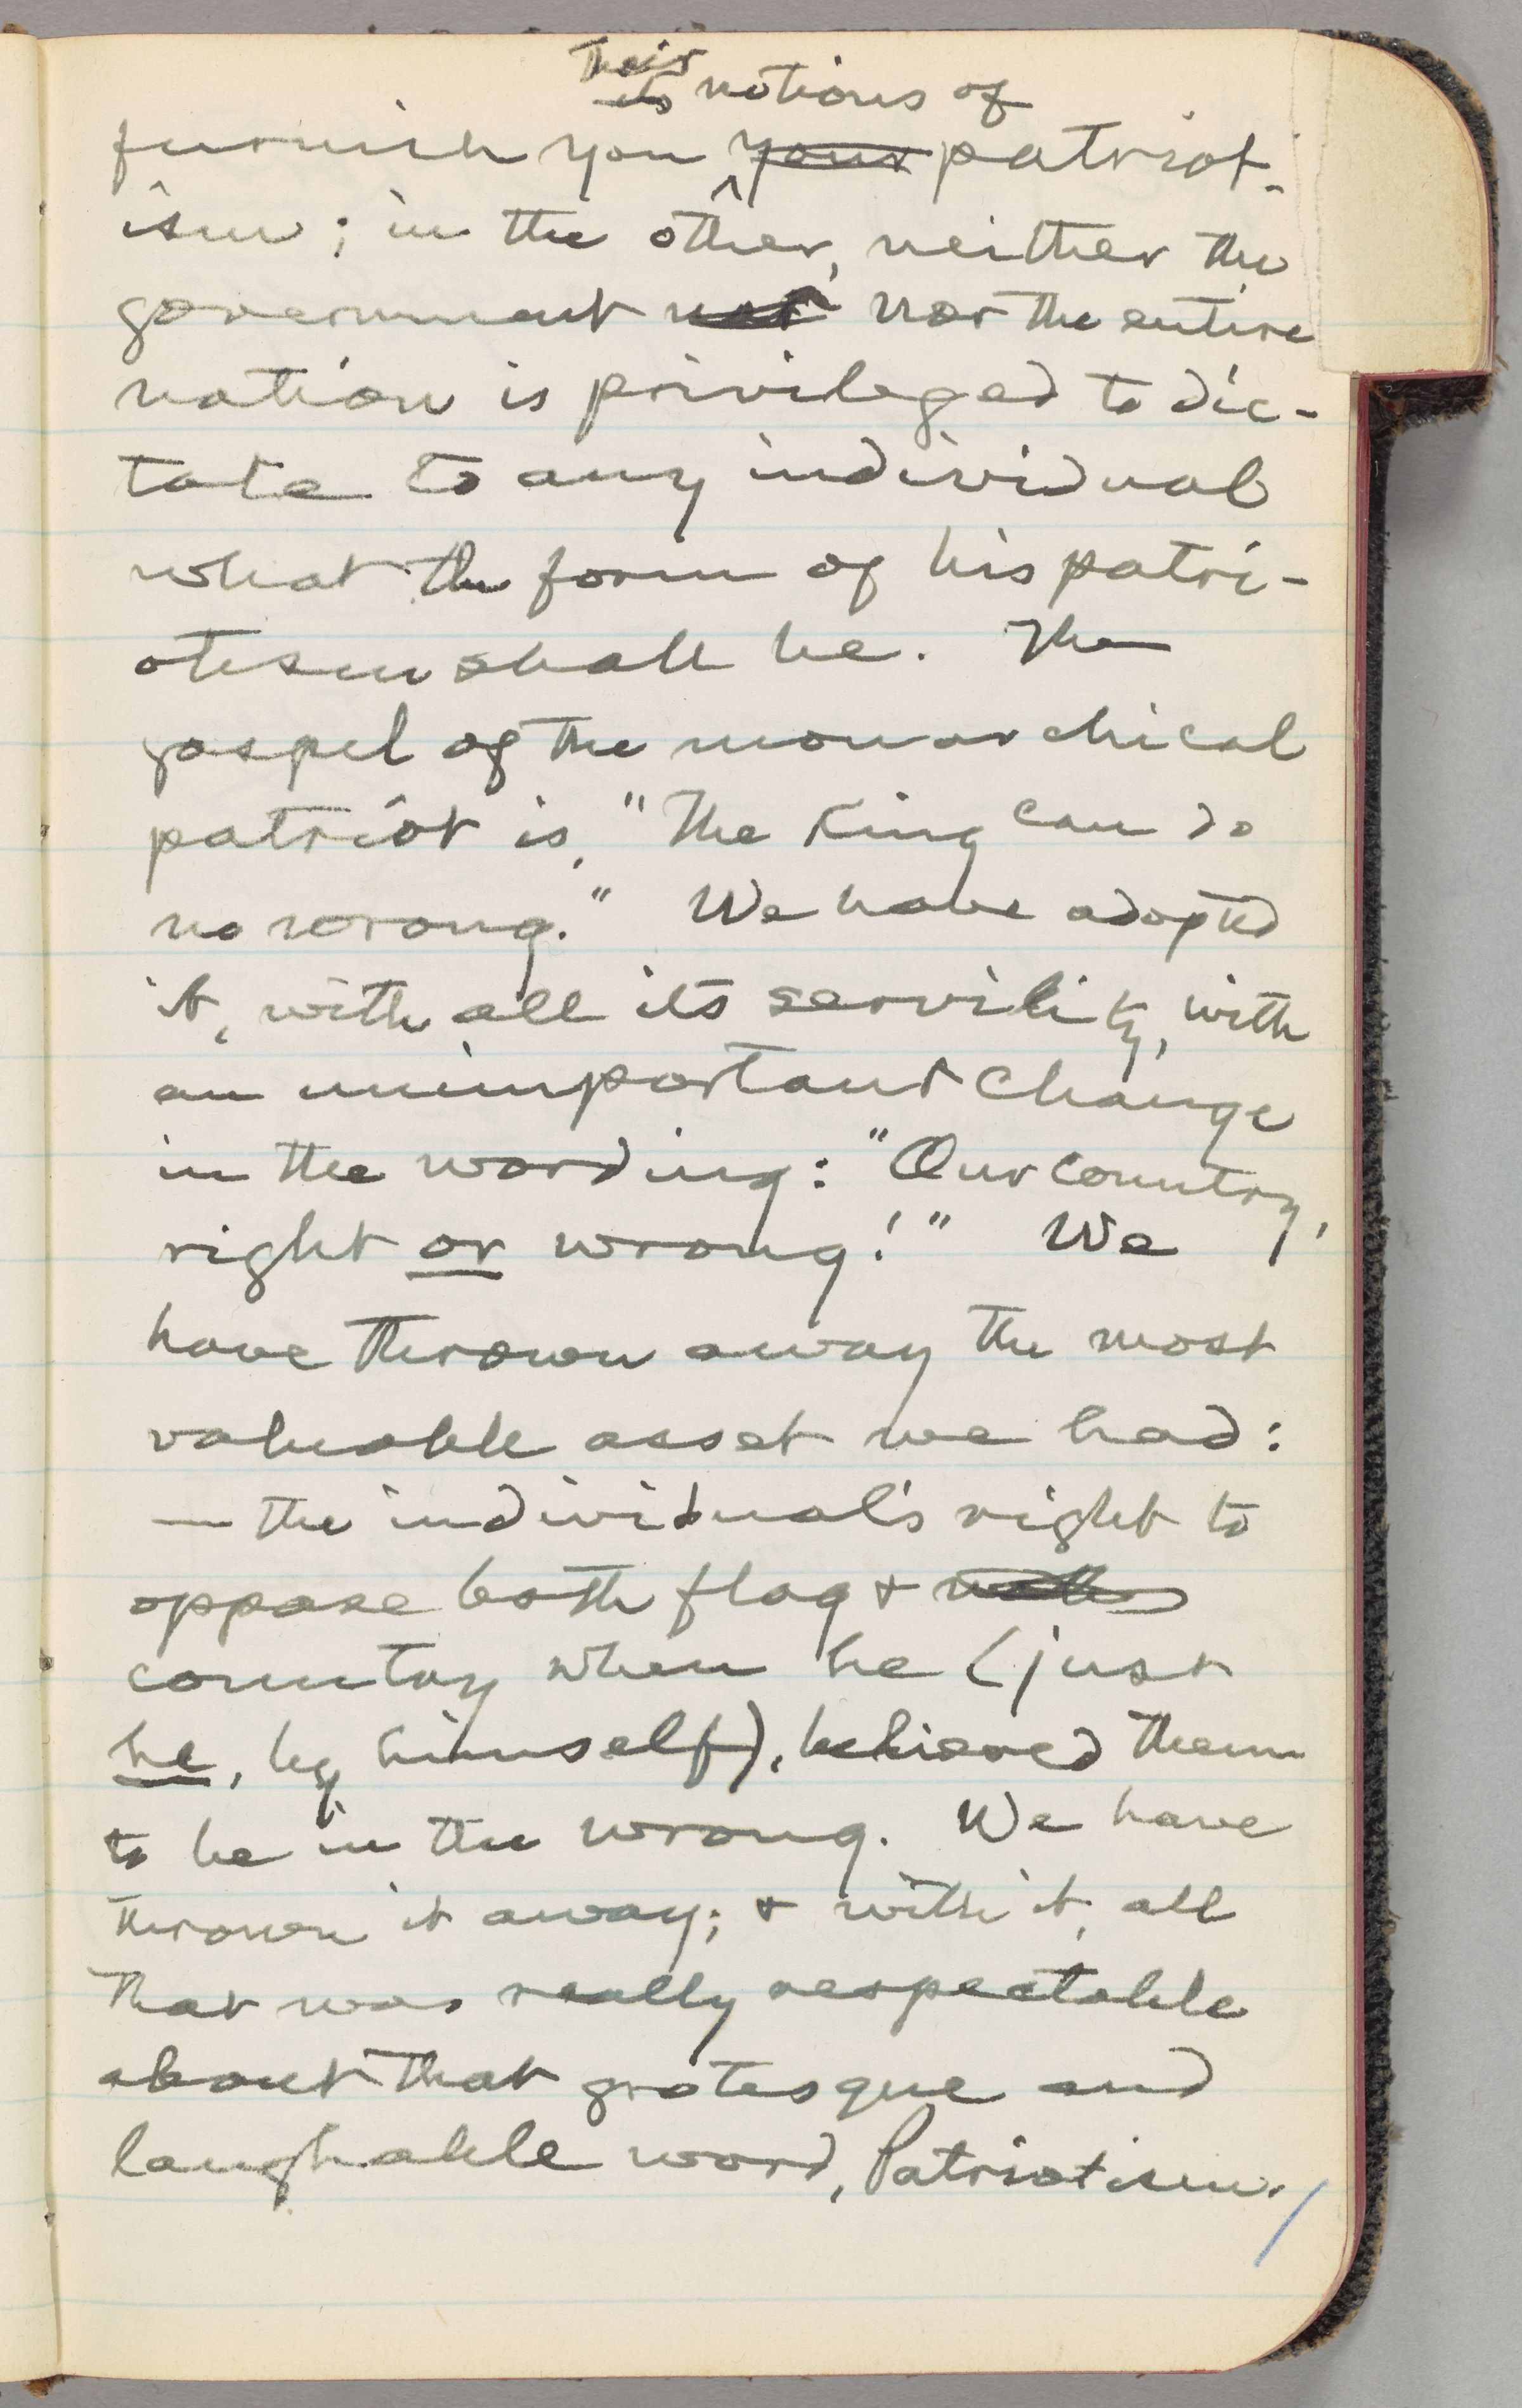 Their
its notions of
furnish you your patriot-
ism; in the other, neither the
government nor nor the entire
nation is privileged to dic-
tate to any individual
what the form of his patri-
otism shall be. The
gospel of the monarchical
patriot is, "The King can do
no wrong." We have adopted
it, with all its servility, with
an unimportant change
in the wording: "Our country,
right or wrong!" We
have thrown away the most
valuable asset we had:
— the individual's right to
oppose both flag &
country when he (just
he, by himself), believed them
to be in the wrong. We have
thrown it away; & with it, all
that was really respectable
about that grotesque and
laughable word, Patriotism.